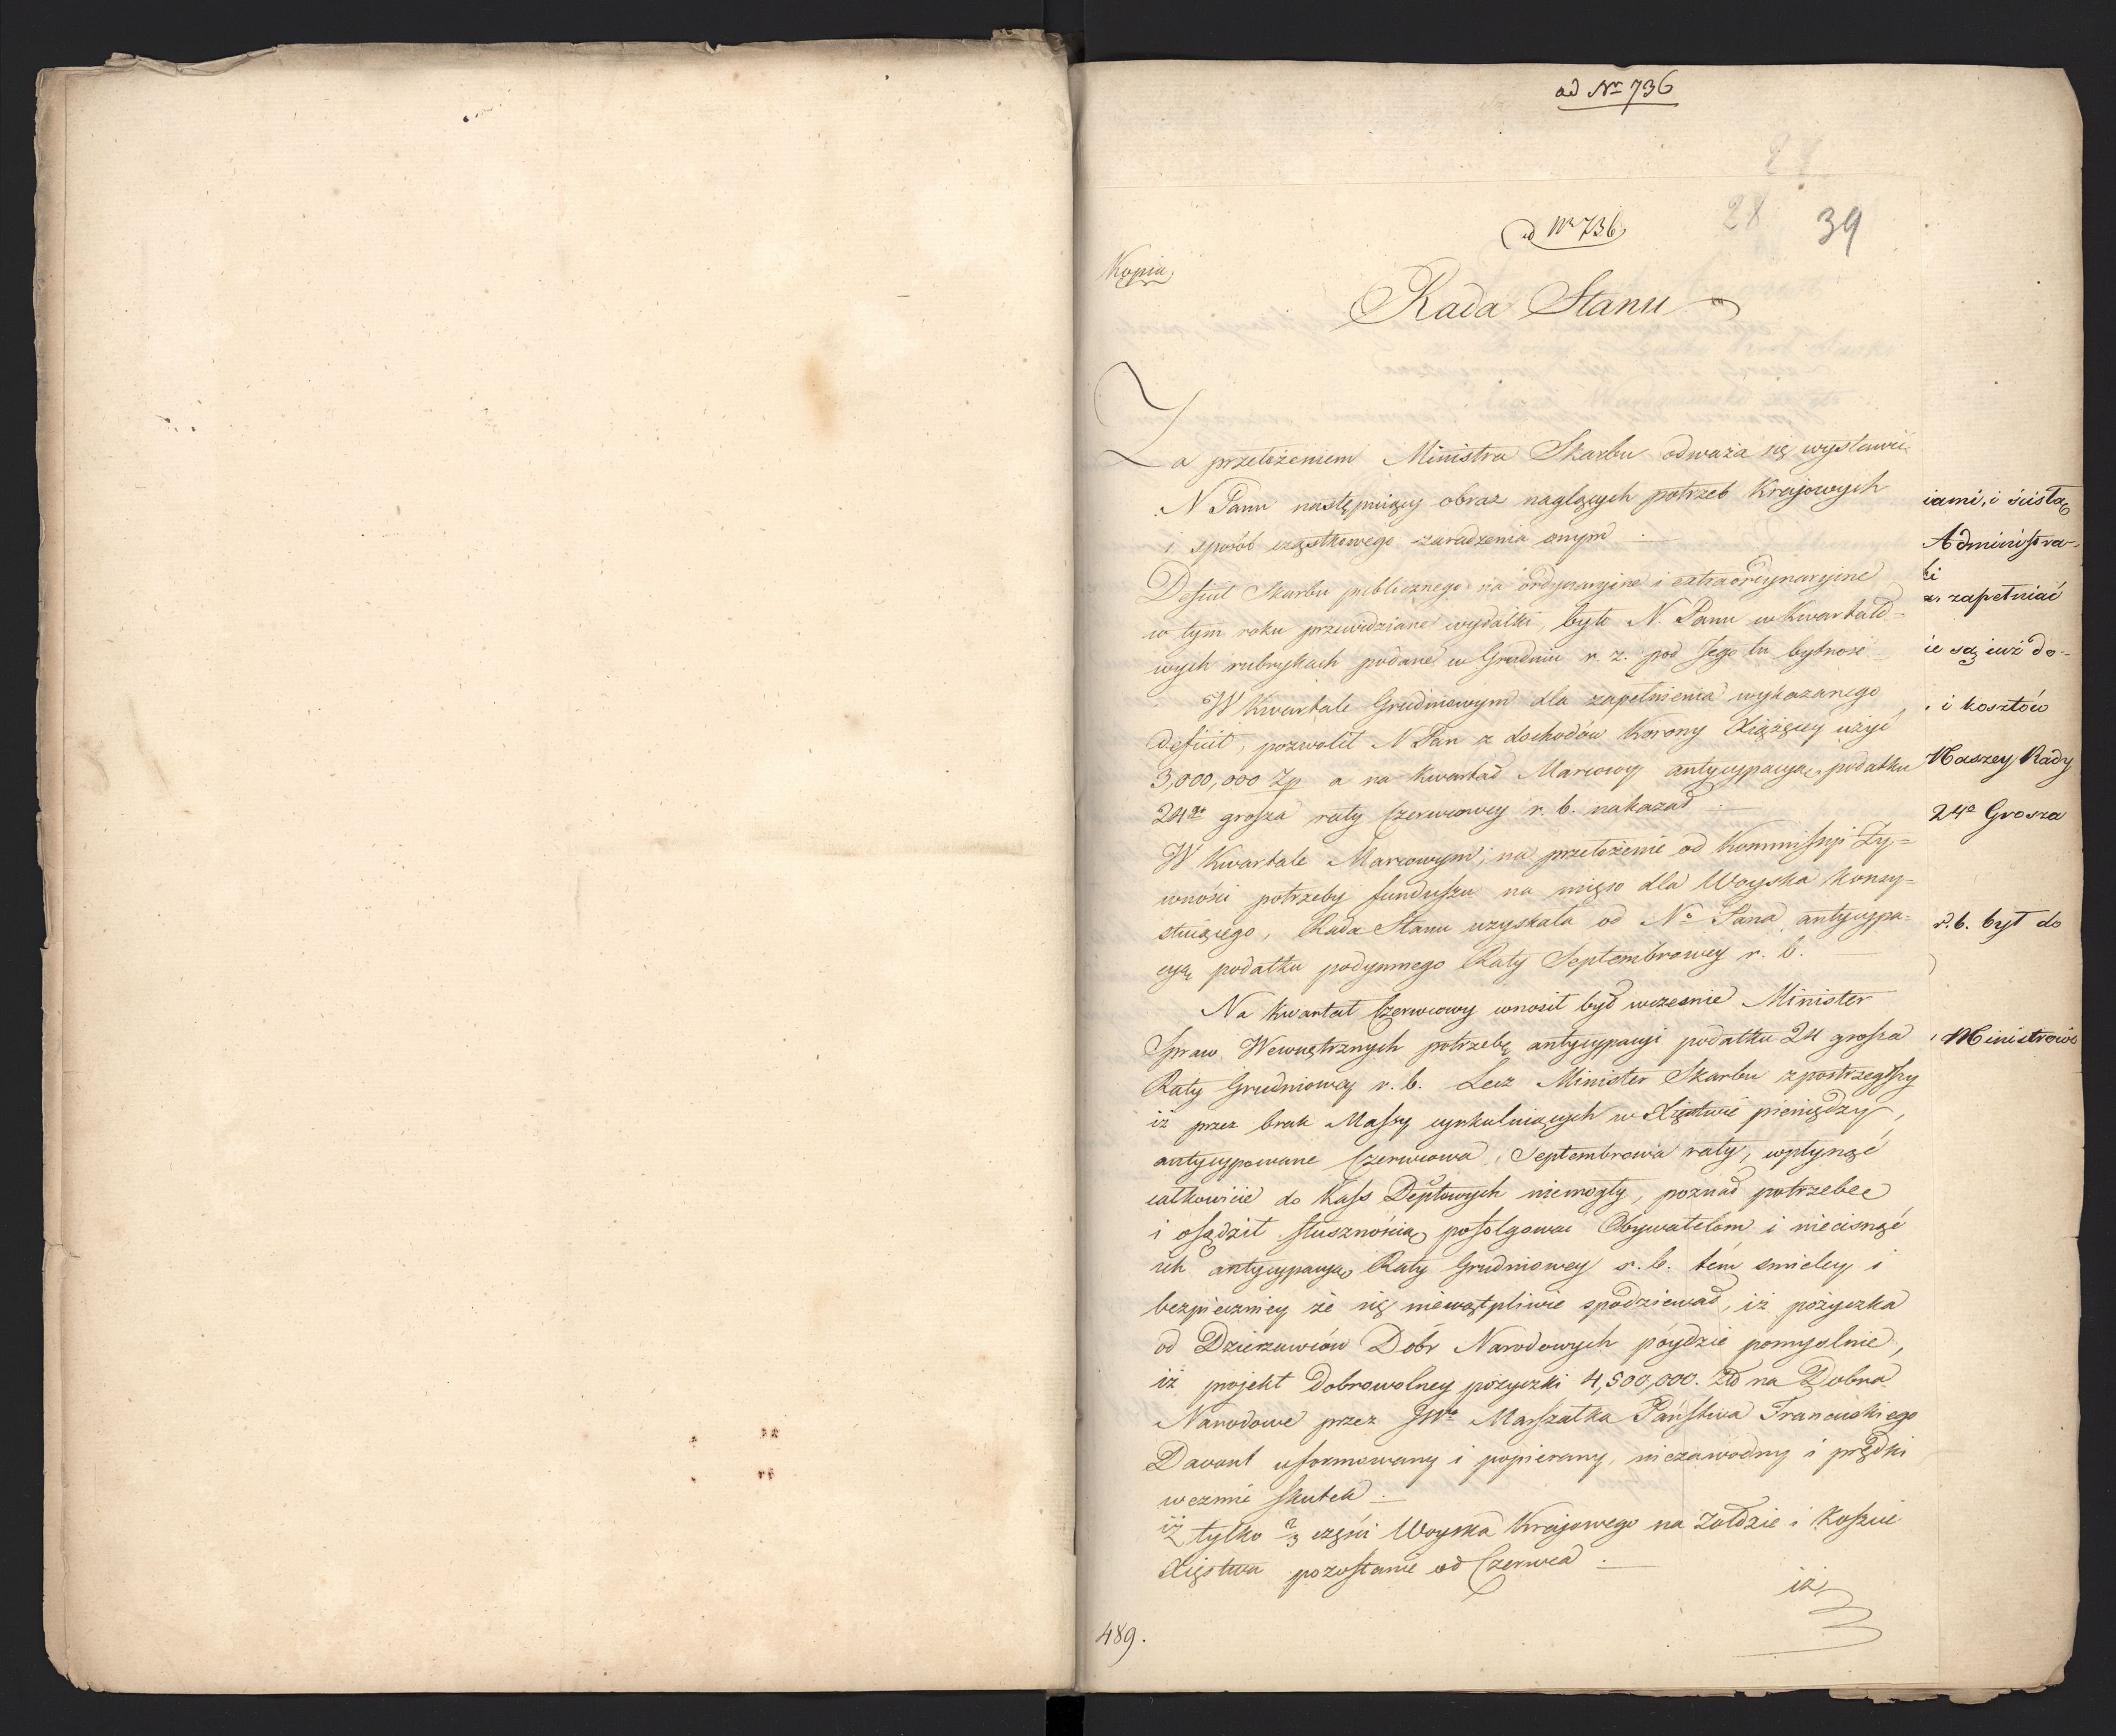 ad Nr 736
28
28 39
ad Nr 736
Kopia
Rada Stanu
Za przełożeniem Ministra Skarbu odważa się wystawić
N Panu następuiący obraz naglących potrzeb Kraiowych
i sposób cząstkowego zaradzenia onym
Deficit Skarbu publicznego na ordynaryine i extraordynaryine
w tym roku przewidziane wydatki, było N. Panu w Kwartało=
wych rubrykach podane w Grudniu r. z. pod Jego tu bytność
W Kwartale Grudniowym dla zapełnienia wykazanego
deficit, pozwolił N Pan z dochodów Korony Xiążęcey użyć
3,000,000 Zp a na Kwartał Marcowy antycypacyą podatku
24go grosza raty Czerwcowey r. b. nakazał
W Kwartale Marcowym, na przełożenie od Kommissyi Ży=
wności potrzeby funduszu na mięso dla Woyska konsy=
stuiącego, Rada Stanu uzyskała od No Pana antycypa=
cyą podatku podymnego Raty Septembrowey r. b.
Na Kwartał Czerwcowy wnosił był wcześnie Minister
Spraw Wewnętrznych potrzebę antycypacyi podatku 24 grosza
Raty Grudniowey r. b. Lecz Minister Skarbu zpostrzegłszy
iż przez brak Massy cyrkuluiących w Xięstwie pieniędzy,
antycypowane Czerwcowa, Septembrowa raty, wpłynąć
całkowicie do Kass Deptowych niemogły, poznał potrzebę
i osądził słusznością pofolgować Obywatelom i niecisnąć
ich antycypacyą Raty Grudniowey r. b. tém śmieley i
bezpieczniey że się niewątpliwie spodziewał, iż pożyczka
od Dzierzawców Dóbr Narodowych póydzie pomyślnie,
iż projekt dobrowolney pożyczki 4,500,000. Zł na Dobra
Narodowe przez JWo Marszałka Państwa Francuskiego
Davout uformowany i popierany, niezawodny i prędki
wezmie skutek
iż tylko 2/3 części Woyska Kraiowego na Żołdzie i Koszcie
Xięstwa pozostanie od Czerwca
iż
489.
iami, i ścisłą
Administra-
ki
zapełniać
ie są iuż do-
i kosztów
Naszey Rady
24a Grosza
r. b. był do
Ministrowi